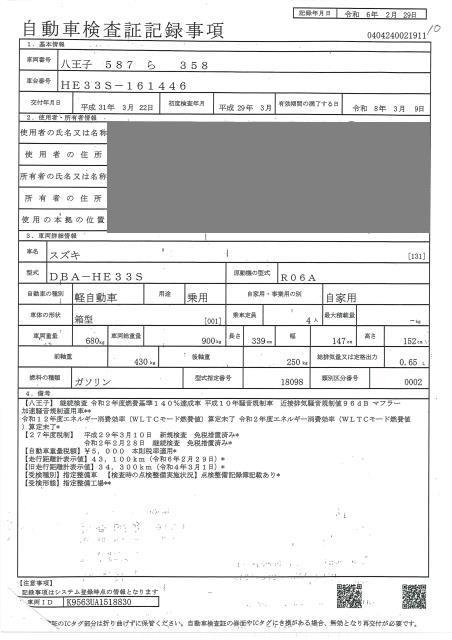 記録年月日 令和 6年 2月 29日
自動車検査証記録事項
0404240021911
10
1. 基本情報
車両番号 八王子 587 ら 358
車台番号 HE33S-161446
交付年月日 平成31年 3月 22日 初度検査年月 平成 29年 3月 有効期間の満了する日 令和 8年 3月 9日
2. 使用者・所有者情報
使用者の氏名又は名称
使用者の住所
所有者の氏名又は名称
所有者の住所
使用の本拠の位置
3. 車両詳細情報
車名 スズキ [131]
型式 DBA-HE33S 原動機の型式 R06A
自動車の種別 軽自動車 用途 乗用 自家用・事業用の別 自家用
車体の形状 箱型 [001] 乗車定員 4人 最大積載量 -kg
車両重量 680kg 車両総重量 900kg 長さ 339cm 幅 147cm 高さ 152cm
前軸重 430kg 後軸重 250kg 総排気量又は定格出力 0.65 L
燃料の種類 ガソリン 型式指定番号 18098 類別区分番号 0002
4. 備考
【八王子】 継続検査 令和2年度燃費基準140%達成車 平成10年騒音規制車 近接排気騒音規制値96dB マフラー
加速騒音規制適用車**
令和12年度エネルギー消費効率(WLTCモード燃費値)算定未了 令和2年度エネルギー消費効率(WLTCモード燃費値
)算定未了*
【27年度税制】 平成29年3月10日 新規検査 免税措置済み*
令和2年2月28日 継続検査 免税措置済み*
【自動車重量税額】¥5,000 本則税率適用*
【走行距離計表示値】43,100km(令和6年2月29日)*
【旧走行距離計表示値】34,300km(令和4年3月1日)*
【受検種別】指定整備車 【検査時の点検整備実施状況】点検整備記録簿記載あり*
【受検形態】指定整備工場**
【注意事項】
記録事項はシステム登録時点の情報となります
車両ID K9563UA1518830
のICタグ部分は折り曲げずに保管ください。自動車検査証の画面やICタグにき損がある場合、無効となり再交付が必要です。